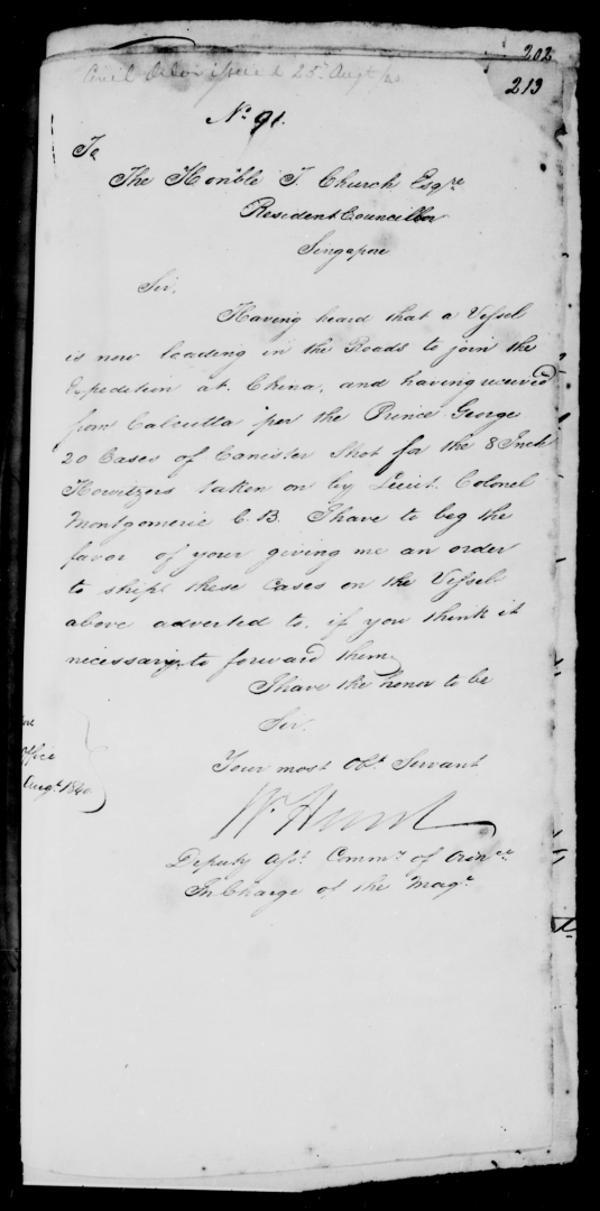 202
213
Civil Order issued 25th Augt/40.
No 91.
To
The Honible T. Church Esqre
Resident Councillor
Singapore
Sir,
Having heard that a Vessel
is now loading in the Roads to join the
Expedition at China, and having received
from Calcutta per the Prince George
20 Cases of Canister Shot for the 8 Inch
Howitzers taken on by Lieut. Colonel
Montgomerie C.B. I have to beg the
favor of your giving me an order
to ship these Cases on the Vessel
above adverted to, if you think it
necessary to forward them,
I have the honor to be
Sir,
Your most Obt Servant
W. Hunt
Deputy Asst Commy of Ordnce
In Charge of the Magne
ore
Office
Augt 1840